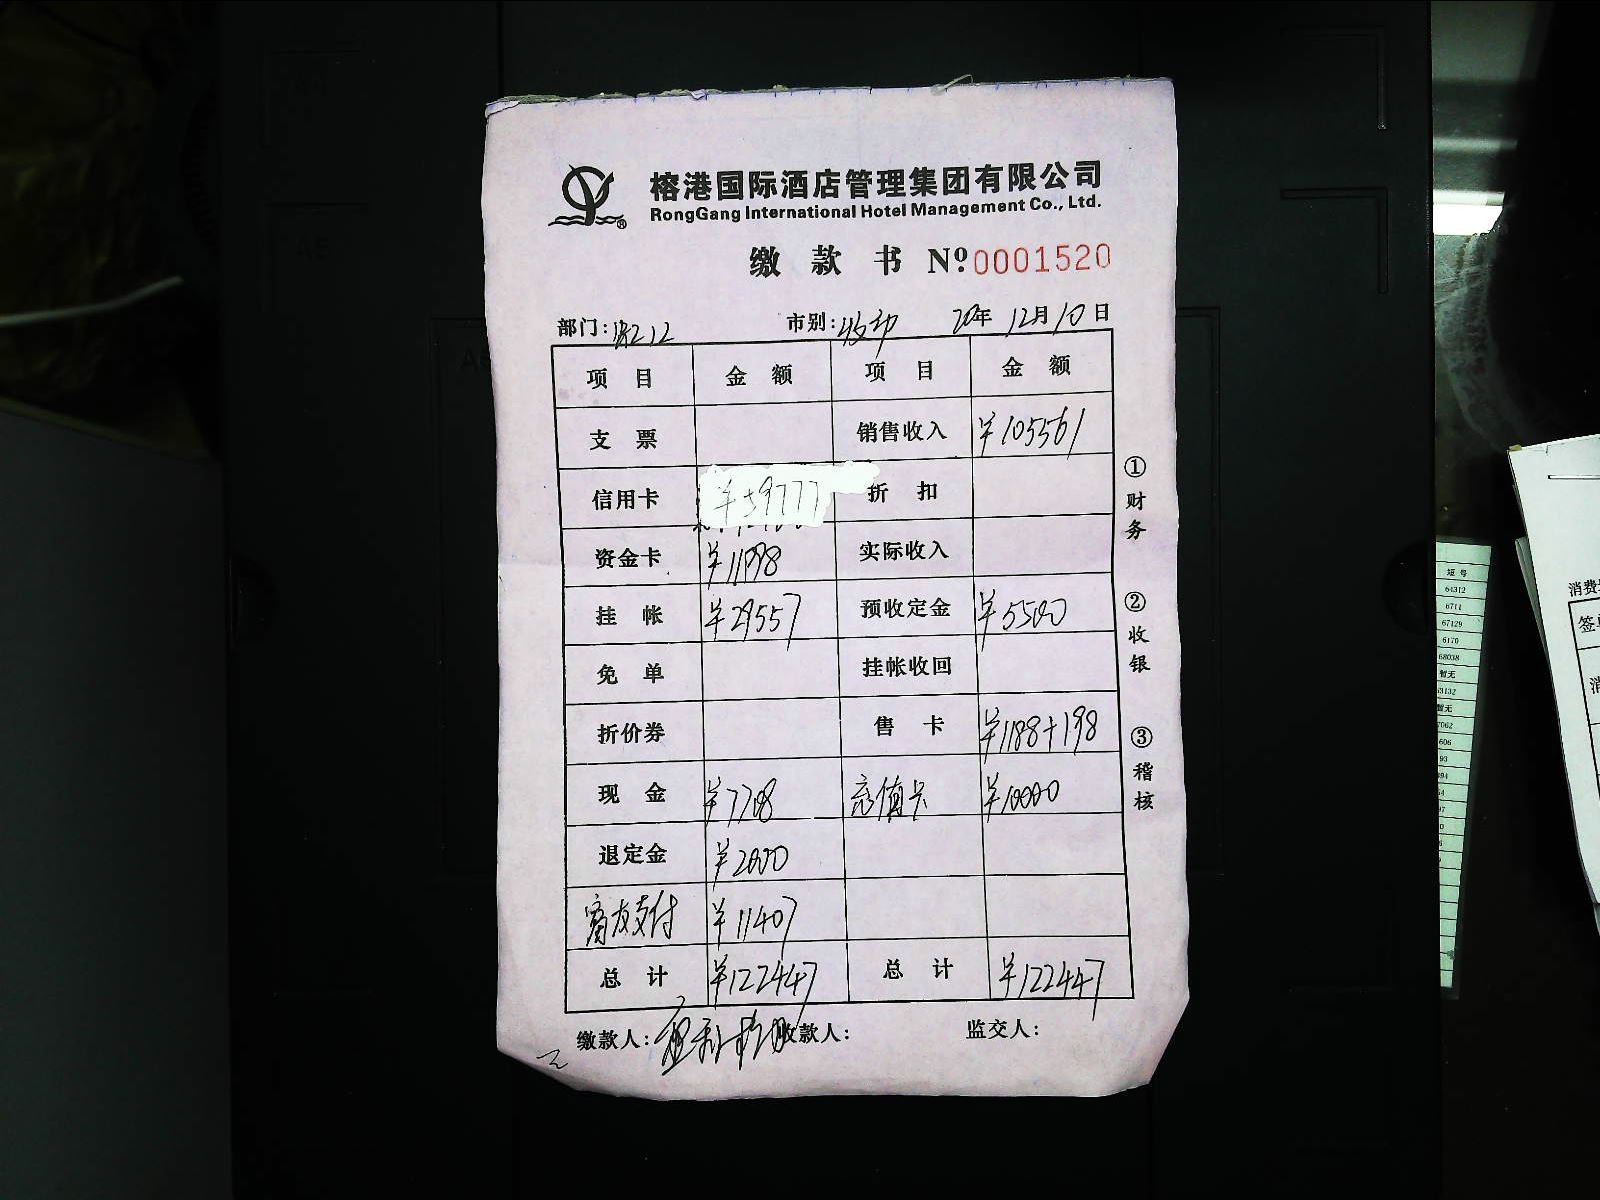 榕港国际酒店管理集团有限公司
RongGang International Hotel Management Co., Ltd.
缴款书 №0001520
部门: 市别: 20年 12月10日
项目 金额 项目 金额
支票 销售收入 ¥105561
信用卡 ¥59777 折扣
资金卡 ¥11998 实际收入
挂帐 ¥29557 预收定金 ¥5500
免单 挂帐收回
折价券 售卡 ¥1188+198
现金 ¥7708 充值卡 ¥10000
退定金 ¥2000
富友支付 ¥11407
总计 ¥122447 总计 ¥122447
缴款人: 收款人: 监交人:
①财务 ②收银 ③稽核
短号
64312
6711
67129
6170
68038
暂无
暂无
消费